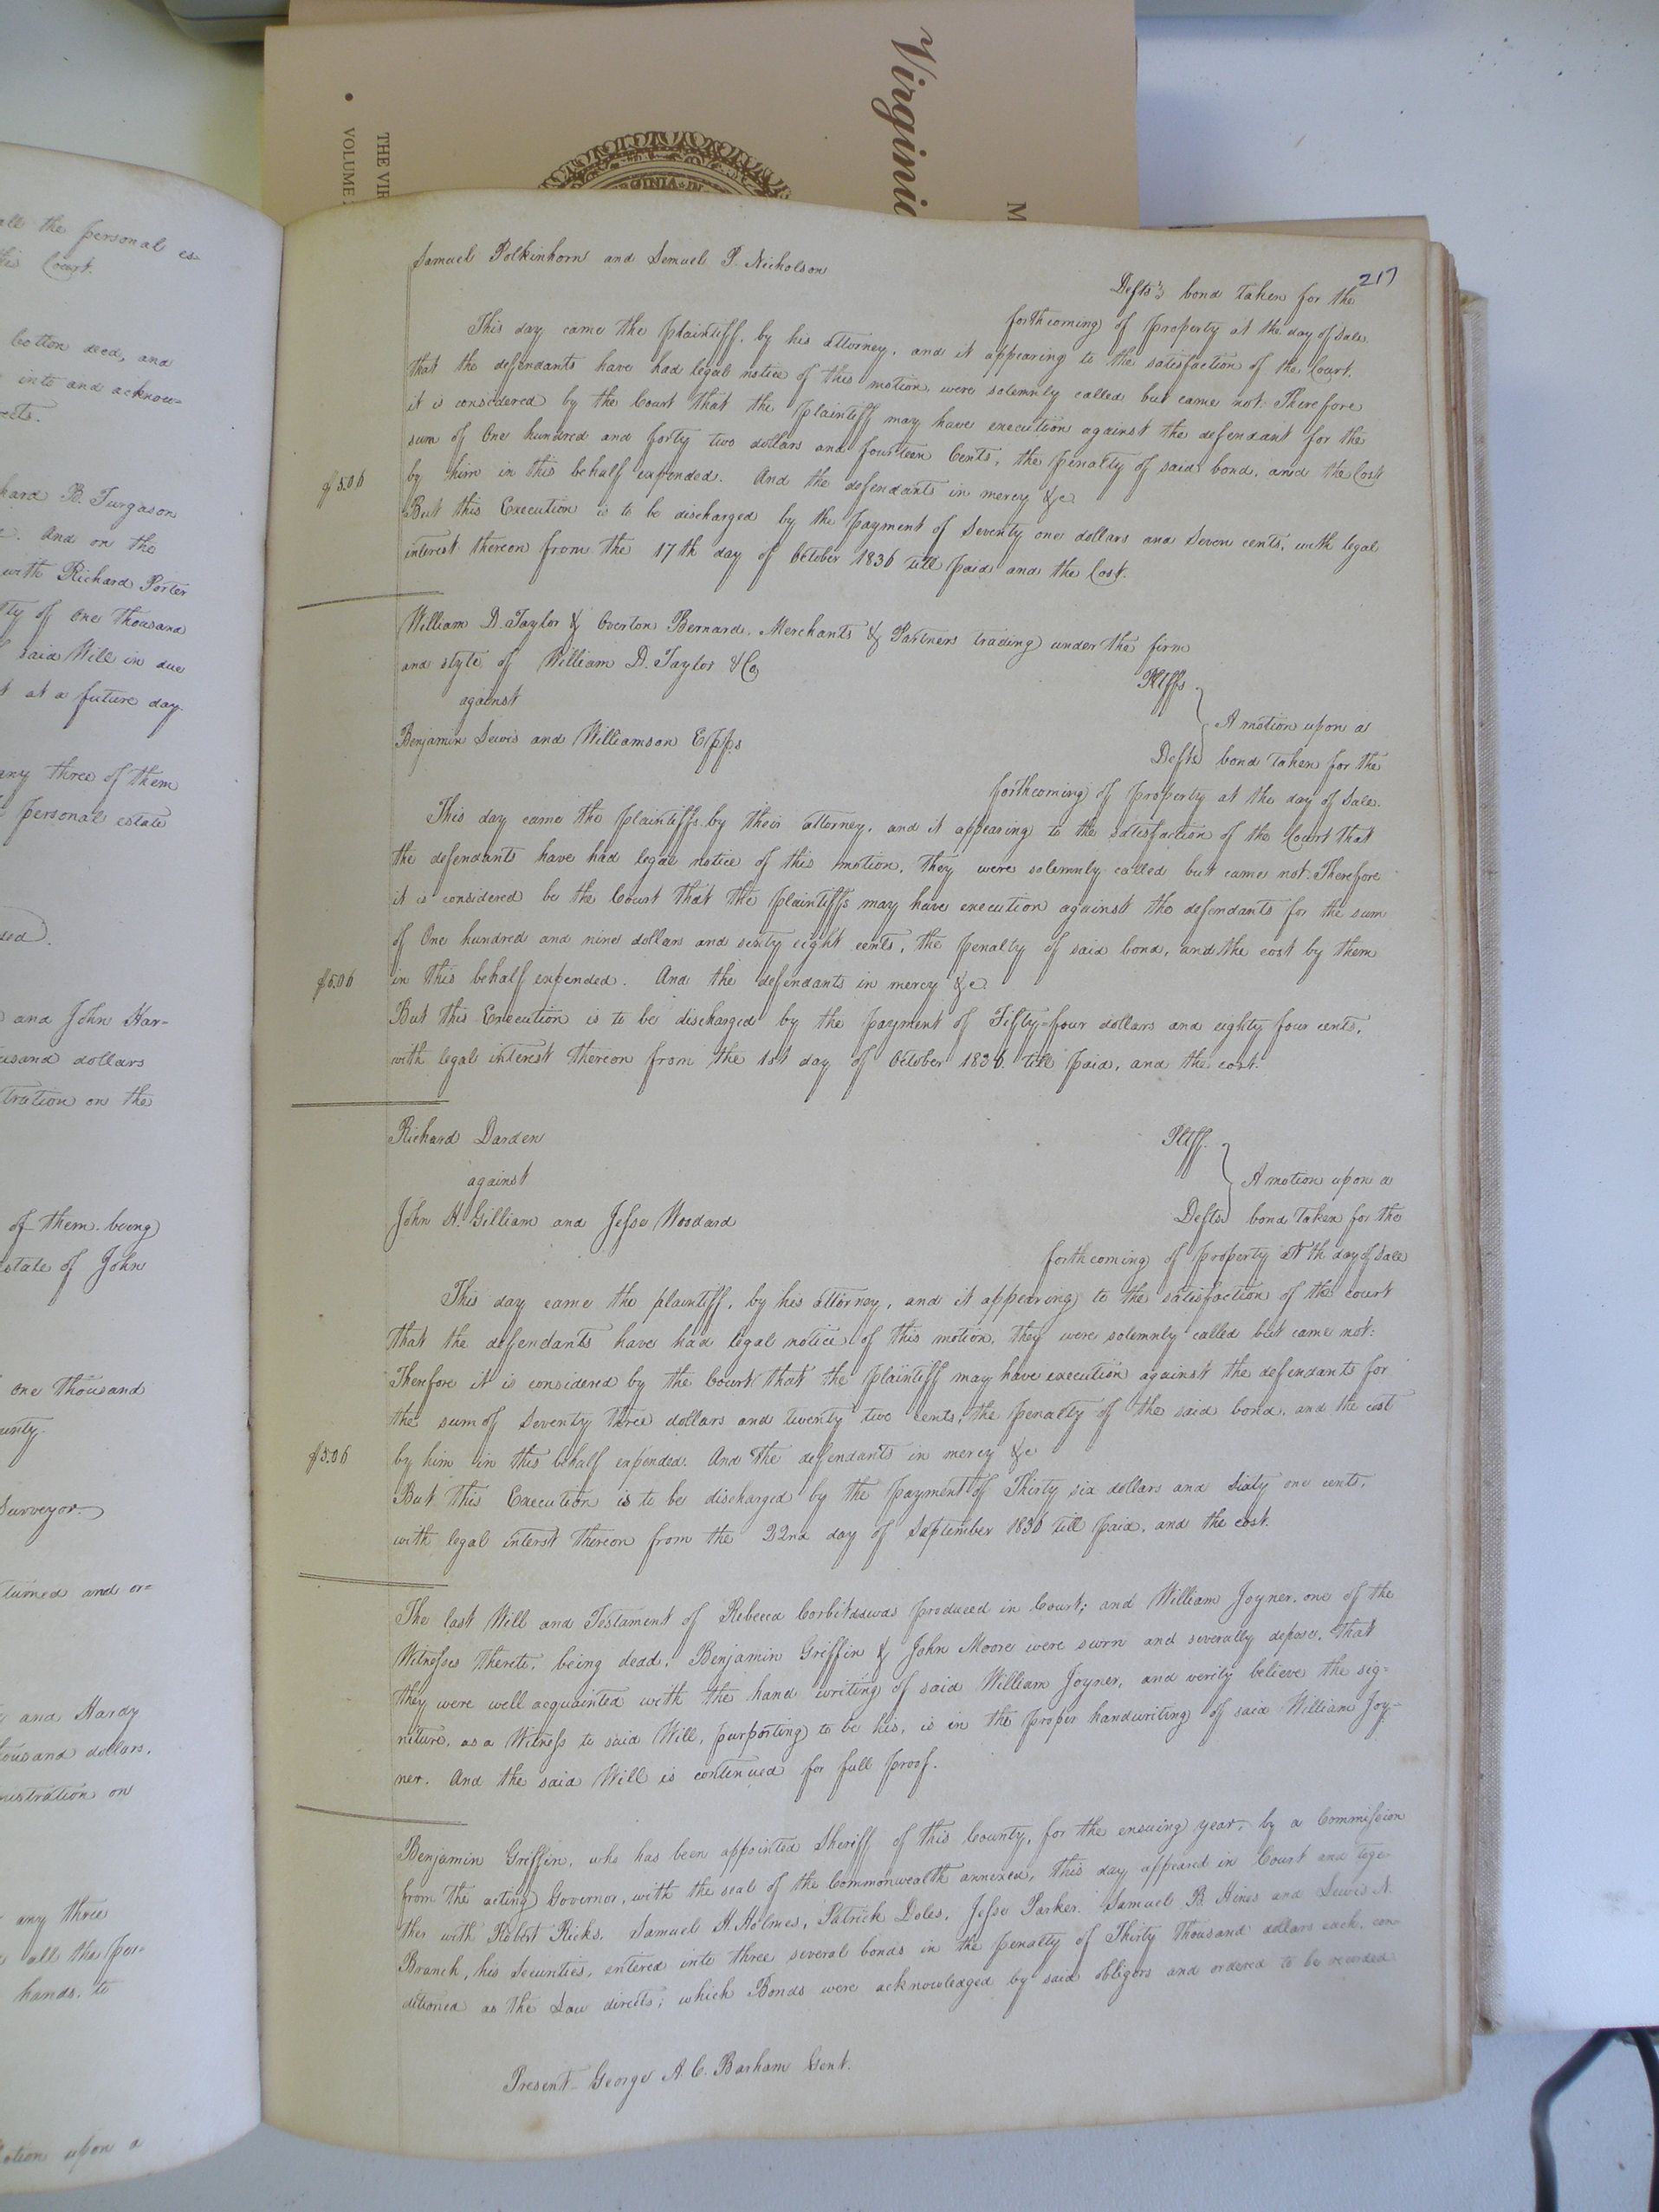 Virginia
M
THE VIR
VOLUME
VIRGINIA
all the personal es-
this Court.
Cotton deed, and
into and acknow=
ects.
hard B. Turgason
And on the
with Richard Porter
lty of One thousand
said Will in due
t at a future day.
any three of them
personal estate
and John Har-
usand dollars
tration on the
of them being
state of John
One thousand
unty.
Surveyor
turned and or=
and Hardy
ousand dollars,
nistration on
any three
all the per-
hands, to
otion upon a
217
Samuel Polkinhorn and Samuel P. Nicholson
Defts bond taken for the
forthcoming of property at the day of Sale.
This day came the plaintiff, by his attorney, and it appearing to the satisfaction of the Court,
that the defendants have had legal notice of this motion, were solemnly called but came not: Therefore
it is considered by the Court that the plaintiff may have execution against the defendant for the
sum of One hundred and forty two dollars and fourteen Cents, the penalty of said bond, and the Cost
$5.06 by him in this behalf expended. And the defendants in mercy &c
But this Execution is to be discharged by the payment of Seventy one dollars and Seven cents, with legal
interest thereon from the 17th day of October 1836 till paid and the Cost.
William D. Taylor & Overton Bernard, Merchants & Partners trading under the firm
and style of William D. Taylor & Co
Pltffs
against
A motion upon a
Benjamin Lewis and Williamson Epps
Defts bond taken for the
forthcoming of property at the day of Sale.
This day came the plaintiffs by their attorney, and it appearing to the satisfaction of the Court that
the defendants have had legal notice of this motion, they were solemnly called but came not: Therefore
it is considered be the Court that the plaintiffs may have execution against the defendants for the sum
of One hundred and nine dollars and sixty eight cents, the penalty of said bond, and the cost by them
$5.06 in this behalf expended. And the defendants in mercy &c
But this Execution is to be discharged by the payment of Fifty-four dollars and eighty four cents,
with legal interest thereon from the 1st day of October 1836 till paid, and the cost.
Richard Darden
Pltff.
against
A motion upon a
John H. Gilliam and Jesse Woodard
Defts bond taken for the
forthcoming of property at th day of Sale
This day came the plaintiff, by his attorney, and it appearing to the satisfaction of the court
that the defendants have had legal notice of this motion, they were solemnly called but came not:
Therefore it is considered by the Court that the plaintiff may have execution against the defendants for
the sum of Seventy three dollars and twenty two cents, the penalty of the said bond, and the cost
$5.06 by him in this behalf expended. And the defendants in mercy &c
But this Execution is to be discharged by the payment of Thirty six dollars and Sixty one cents,
with legal interst thereon from the 22nd day of September 1836 till paid, and the cost.
The last Will and Testament of Rebecca was produced in Court; and William Joyner, one of the
Witnesses thereto, being dead, Benjamin Griffin & John Moore were sworn and severally depose, that
they were well acquainted with the hand writing of said William Joyner, and verily believe the sig=
niture, as a Witness to said Will, purporting to be his, is in the proper handwriting of said William Joy-
ner. And the said Will is continued for full proof.
Benjamin Griffin, who has been appointed Sheriff of this County, for the ensuing year, by a Commission
from the acting Governor, with the seal of the Commonwealth annexed, this day appeared in Court and toge-
ther with Robert Ricks, Samuel H. Holmes, Patrick Doles, Jesse Parker, Samuel B. Hines and Lewis N.
Branch, his Securities, entered into three several bonds in the penalty of Thirty Thousand dollars each, con-
ditioned as the Law directs; which Bonds were acknowledged by said obligors and ordered to be recorded
Present George A. C. Barham Gent.